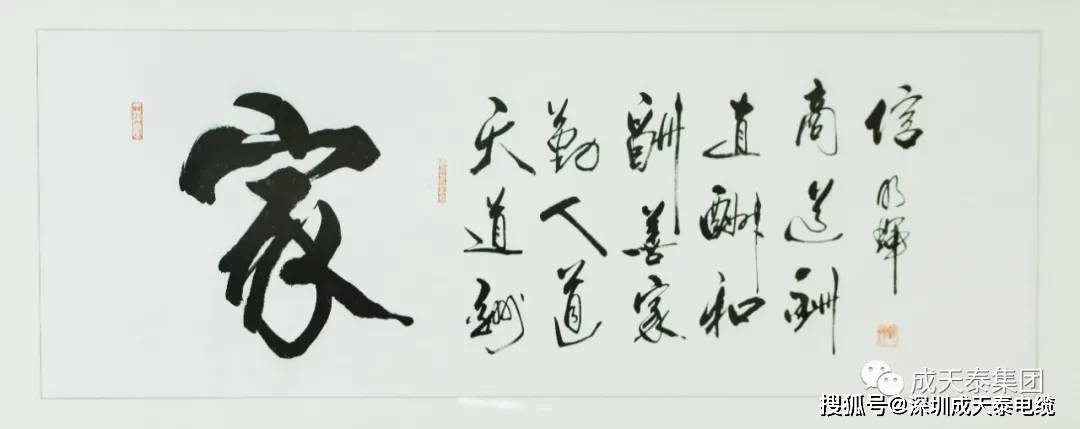 家
天道酬
勤人道
酬善家
道酬和
商道酬
信 明輝
成天泰集团
搜狐号@深圳成天泰电缆